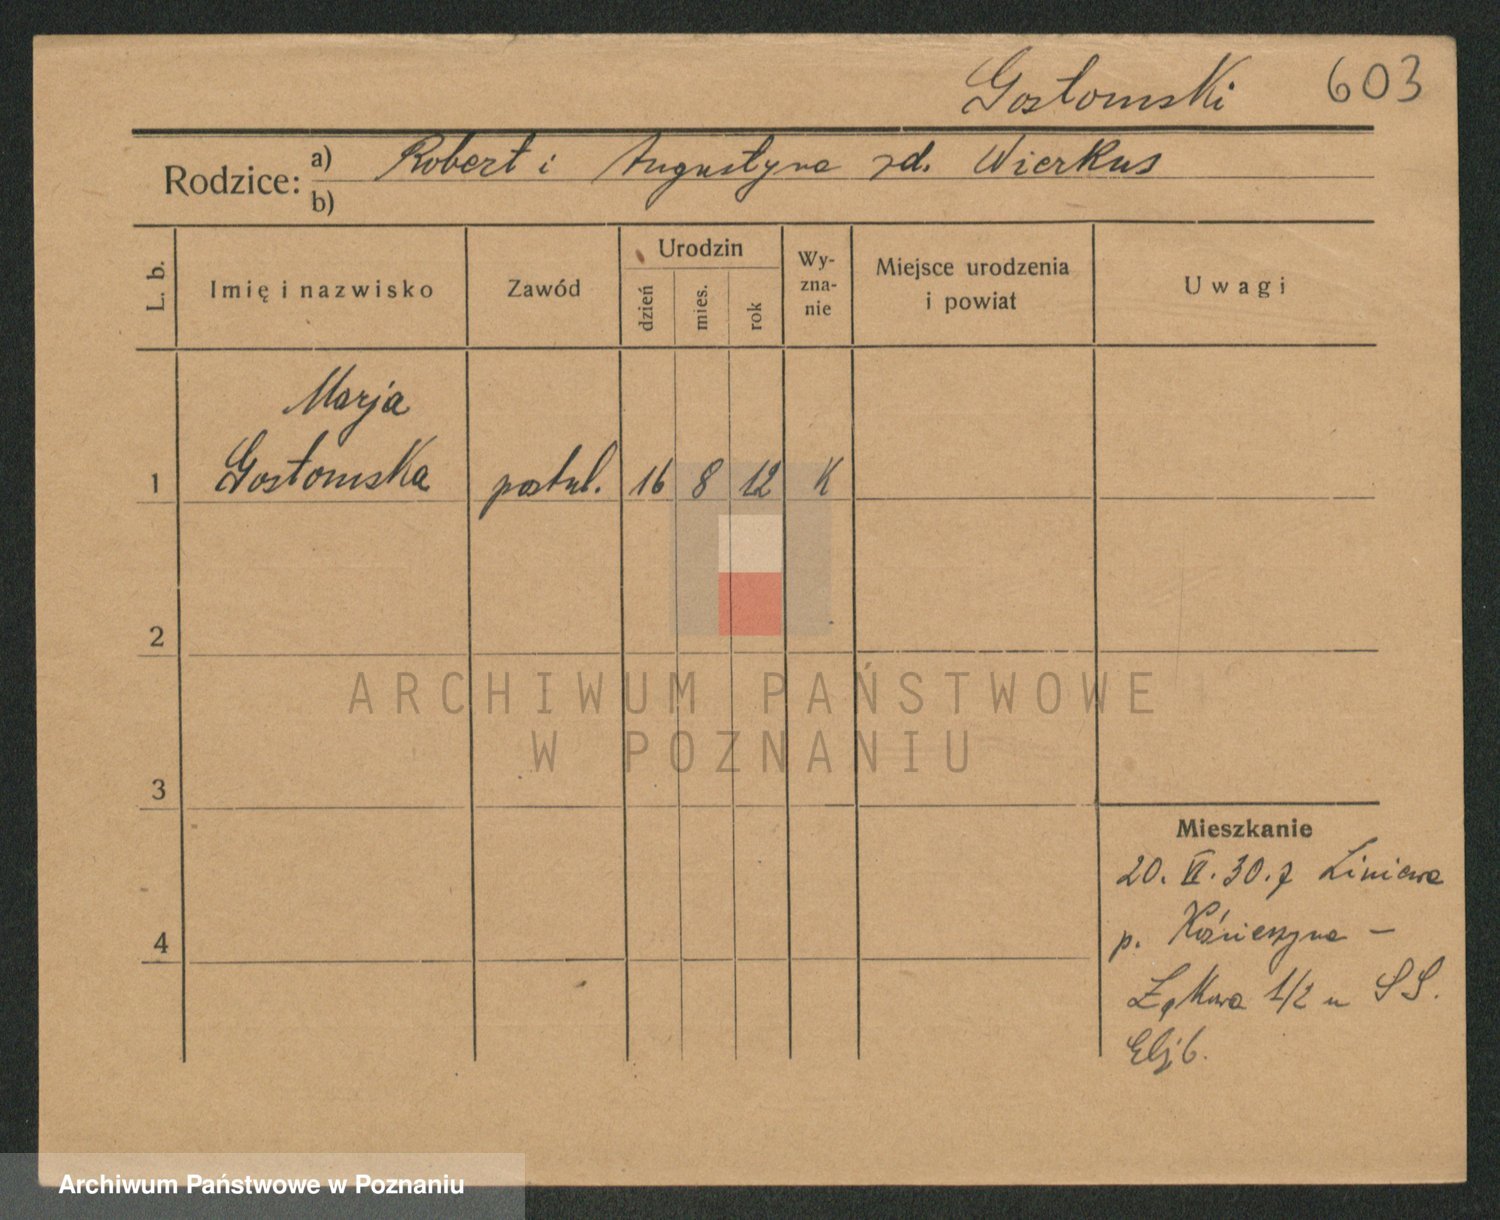 Gostomski 603
Rodzice: a) Robert i Augustyna zd. Wierkus
b)
L. b. Imię i nazwisko Zawód Urodzin dzień mies. rok Wyznanie Miejsce urodzenia i powiat Uwagi
Marja
1 Gostomska postul. 16 8 12 K
2
ARCHIWUM PAŃSTWOWE
W POZNANIU
3
Mieszkanie
20. VI. 30. z Liniewa
p. Kościerzyna –
4
Łąkowa 1/2 u SS.
Elżb.
Archiwum Państwowe w Poznaniu